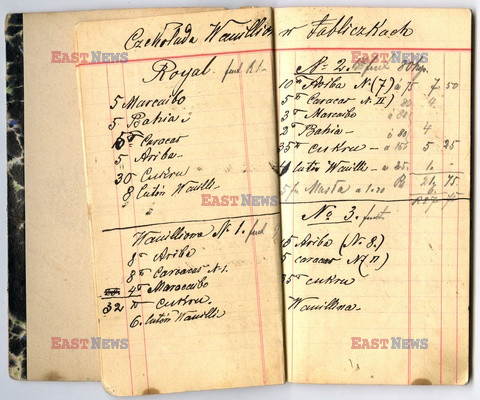 Czekolada Waniliowa w Tabliczkach
Royal. funt R.1-
5 Marcaibo
5 Bahia
5 Caracas
5 Ariba
30 Cukru
8 lutów Wanilii
Waniliowa № 1. funt
8 Ariba
8 Caracas N 1.
4 Maracaibo
32 cukru.
6. lutów Wanilii
№ 2. funt 80 kp.
10 Ariba N (7) á 75 7 50
5 Caracas N II) 80
3 Marcaibo á 80
2 Bahia - á 80 4
35 cukru - a 15 5 25
4 lutów Wanilii - a 25 1.-
5 f. Masła a 1.20 31 75
№ 3. funt
5 Ariba (№ 8.)
5 caracas N (II)
35 cukru
Waniliowa
EAST NEWS
EAST NEWS
EAST NEWS
EAST NEWS
EAST NEWS
EAST NEWS